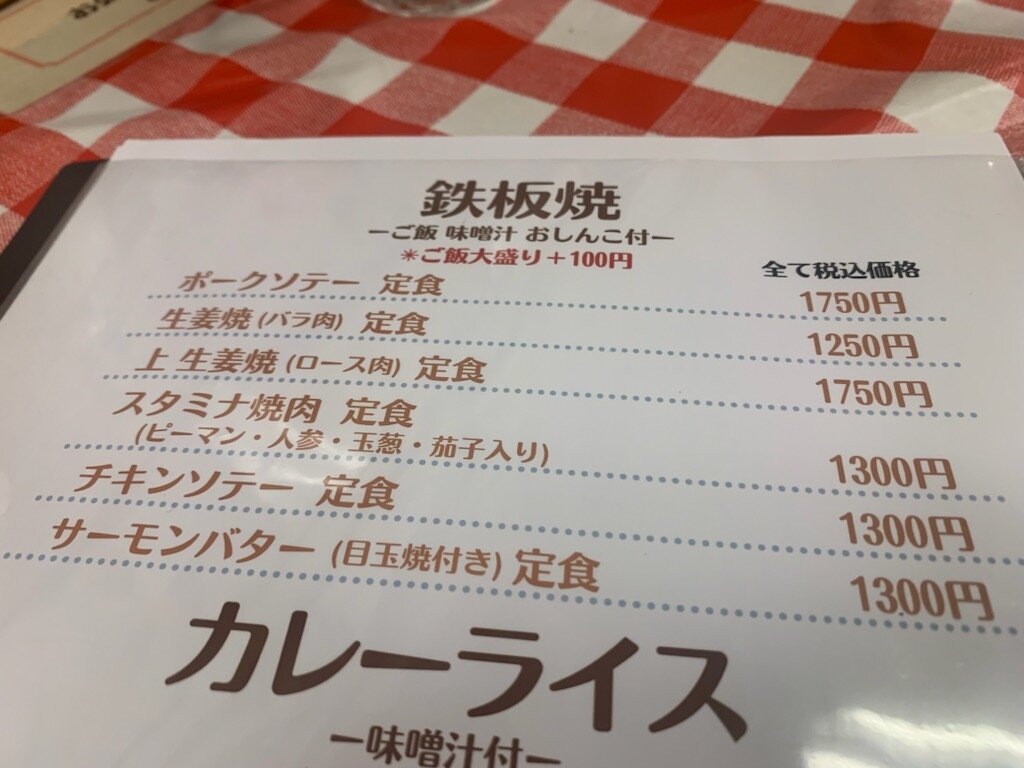 鉄板焼
ーご飯 味噌汁 おしんこ付ー
*ご飯大盛り+100円
全て税込価格
ポークソテー 定食 1750円
生姜焼(バラ肉) 定食 1250円
上 生姜焼(ロース肉) 定食 1750円
スタミナ焼肉 定食
(ピーマン・人参・玉葱・茄子入り) 1300円
チキンソテー 定食 1300円
サーモンバター(目玉焼付き)定食 1300円
カレーライス
ー味噌汁付ー